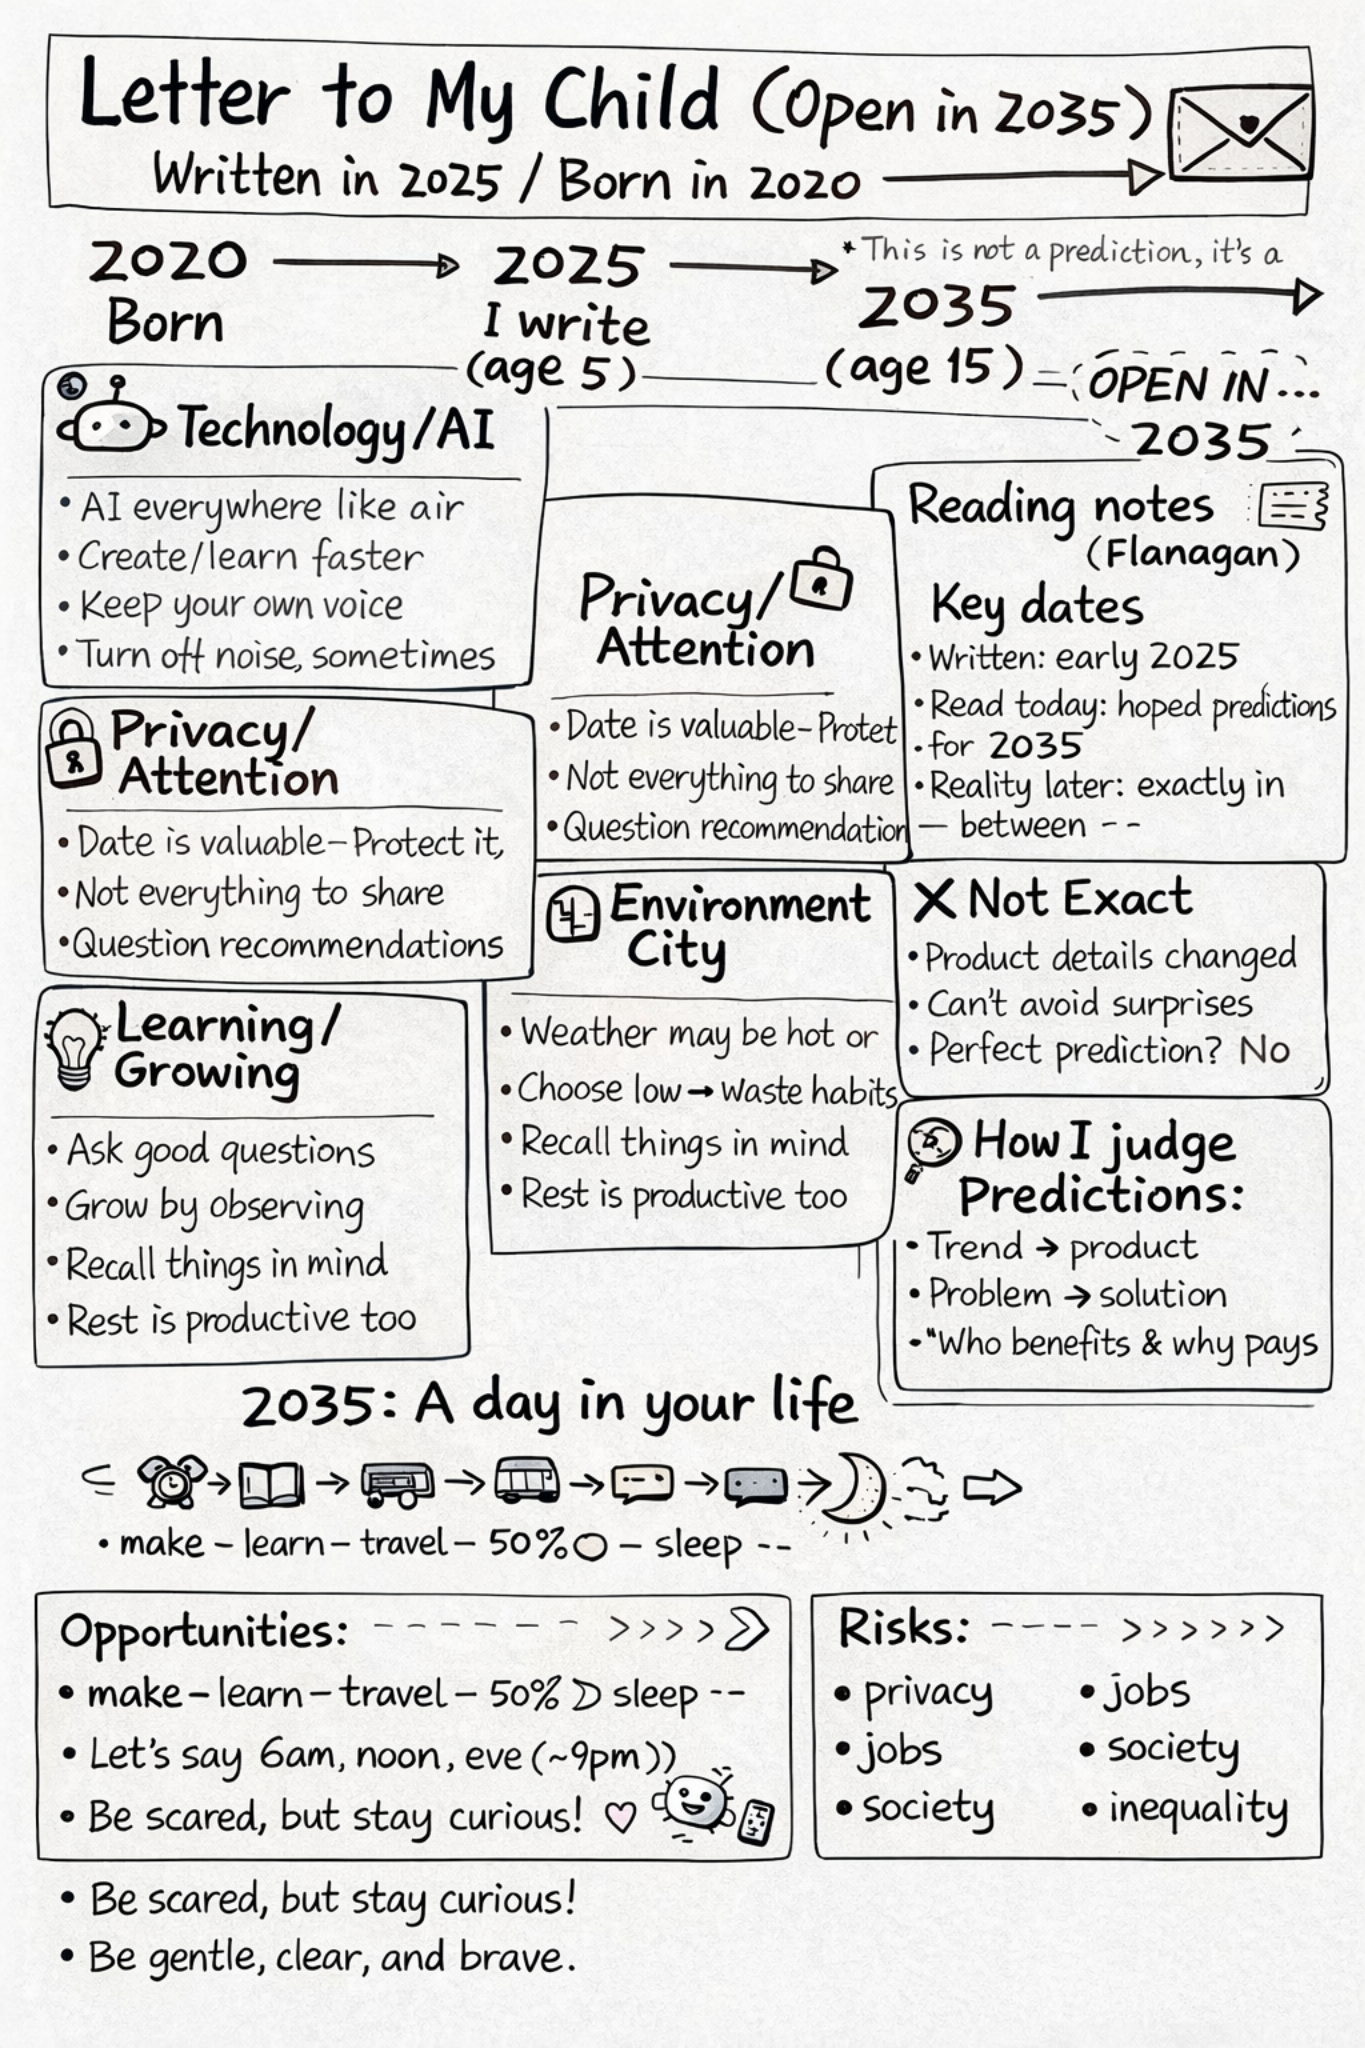 Letter to My Child (Open in 2035)
Written in 2025 / Born in 2020
2020
Born
2025
I write
(age 5)
* This is not a prediction, it's a
2035
(age 15)
OPEN IN...
2035
Technology/AI
• AI everywhere like air
• Create/learn faster
• Keep your own voice
• Turn off noise, sometimes
Privacy/
Attention
• Date is valuable–Protect it,
• Not everything to share
• Question recommendations
Learning/
Growing
• Ask good questions
• Grow by observing
• Recall things in mind
• Rest is productive too
Privacy/
Attention
• Date is valuable–Protet
• Not everything to share
• Question recommendation
Environment
City
• Weather may be hot or
• Choose low → waste habits
• Recall things in mind
• Rest is productive too
Reading notes
(Flanagan)
Key dates
• Written: early 2025
• Read today: hoped predictions
• for 2035
• Reality later: exactly in
— between --
X Not Exact
• Product details changed
• Can't avoid surprises
• Perfect prediction? No
How I judge
Predictions:
• Trend → product
• Problem → solution
• "Who benefits & why pays
2035: A day in your life
• make – learn – travel – 50% – sleep --
Opportunities:
• make – learn – travel – 50% sleep --
• Let's say 6am, noon, eve (~9pm))
• Be scared, but stay curious!
Risks:
• privacy • jobs
• jobs • society
• society • inequality
• Be scared, but stay curious!
• Be gentle, clear, and brave.